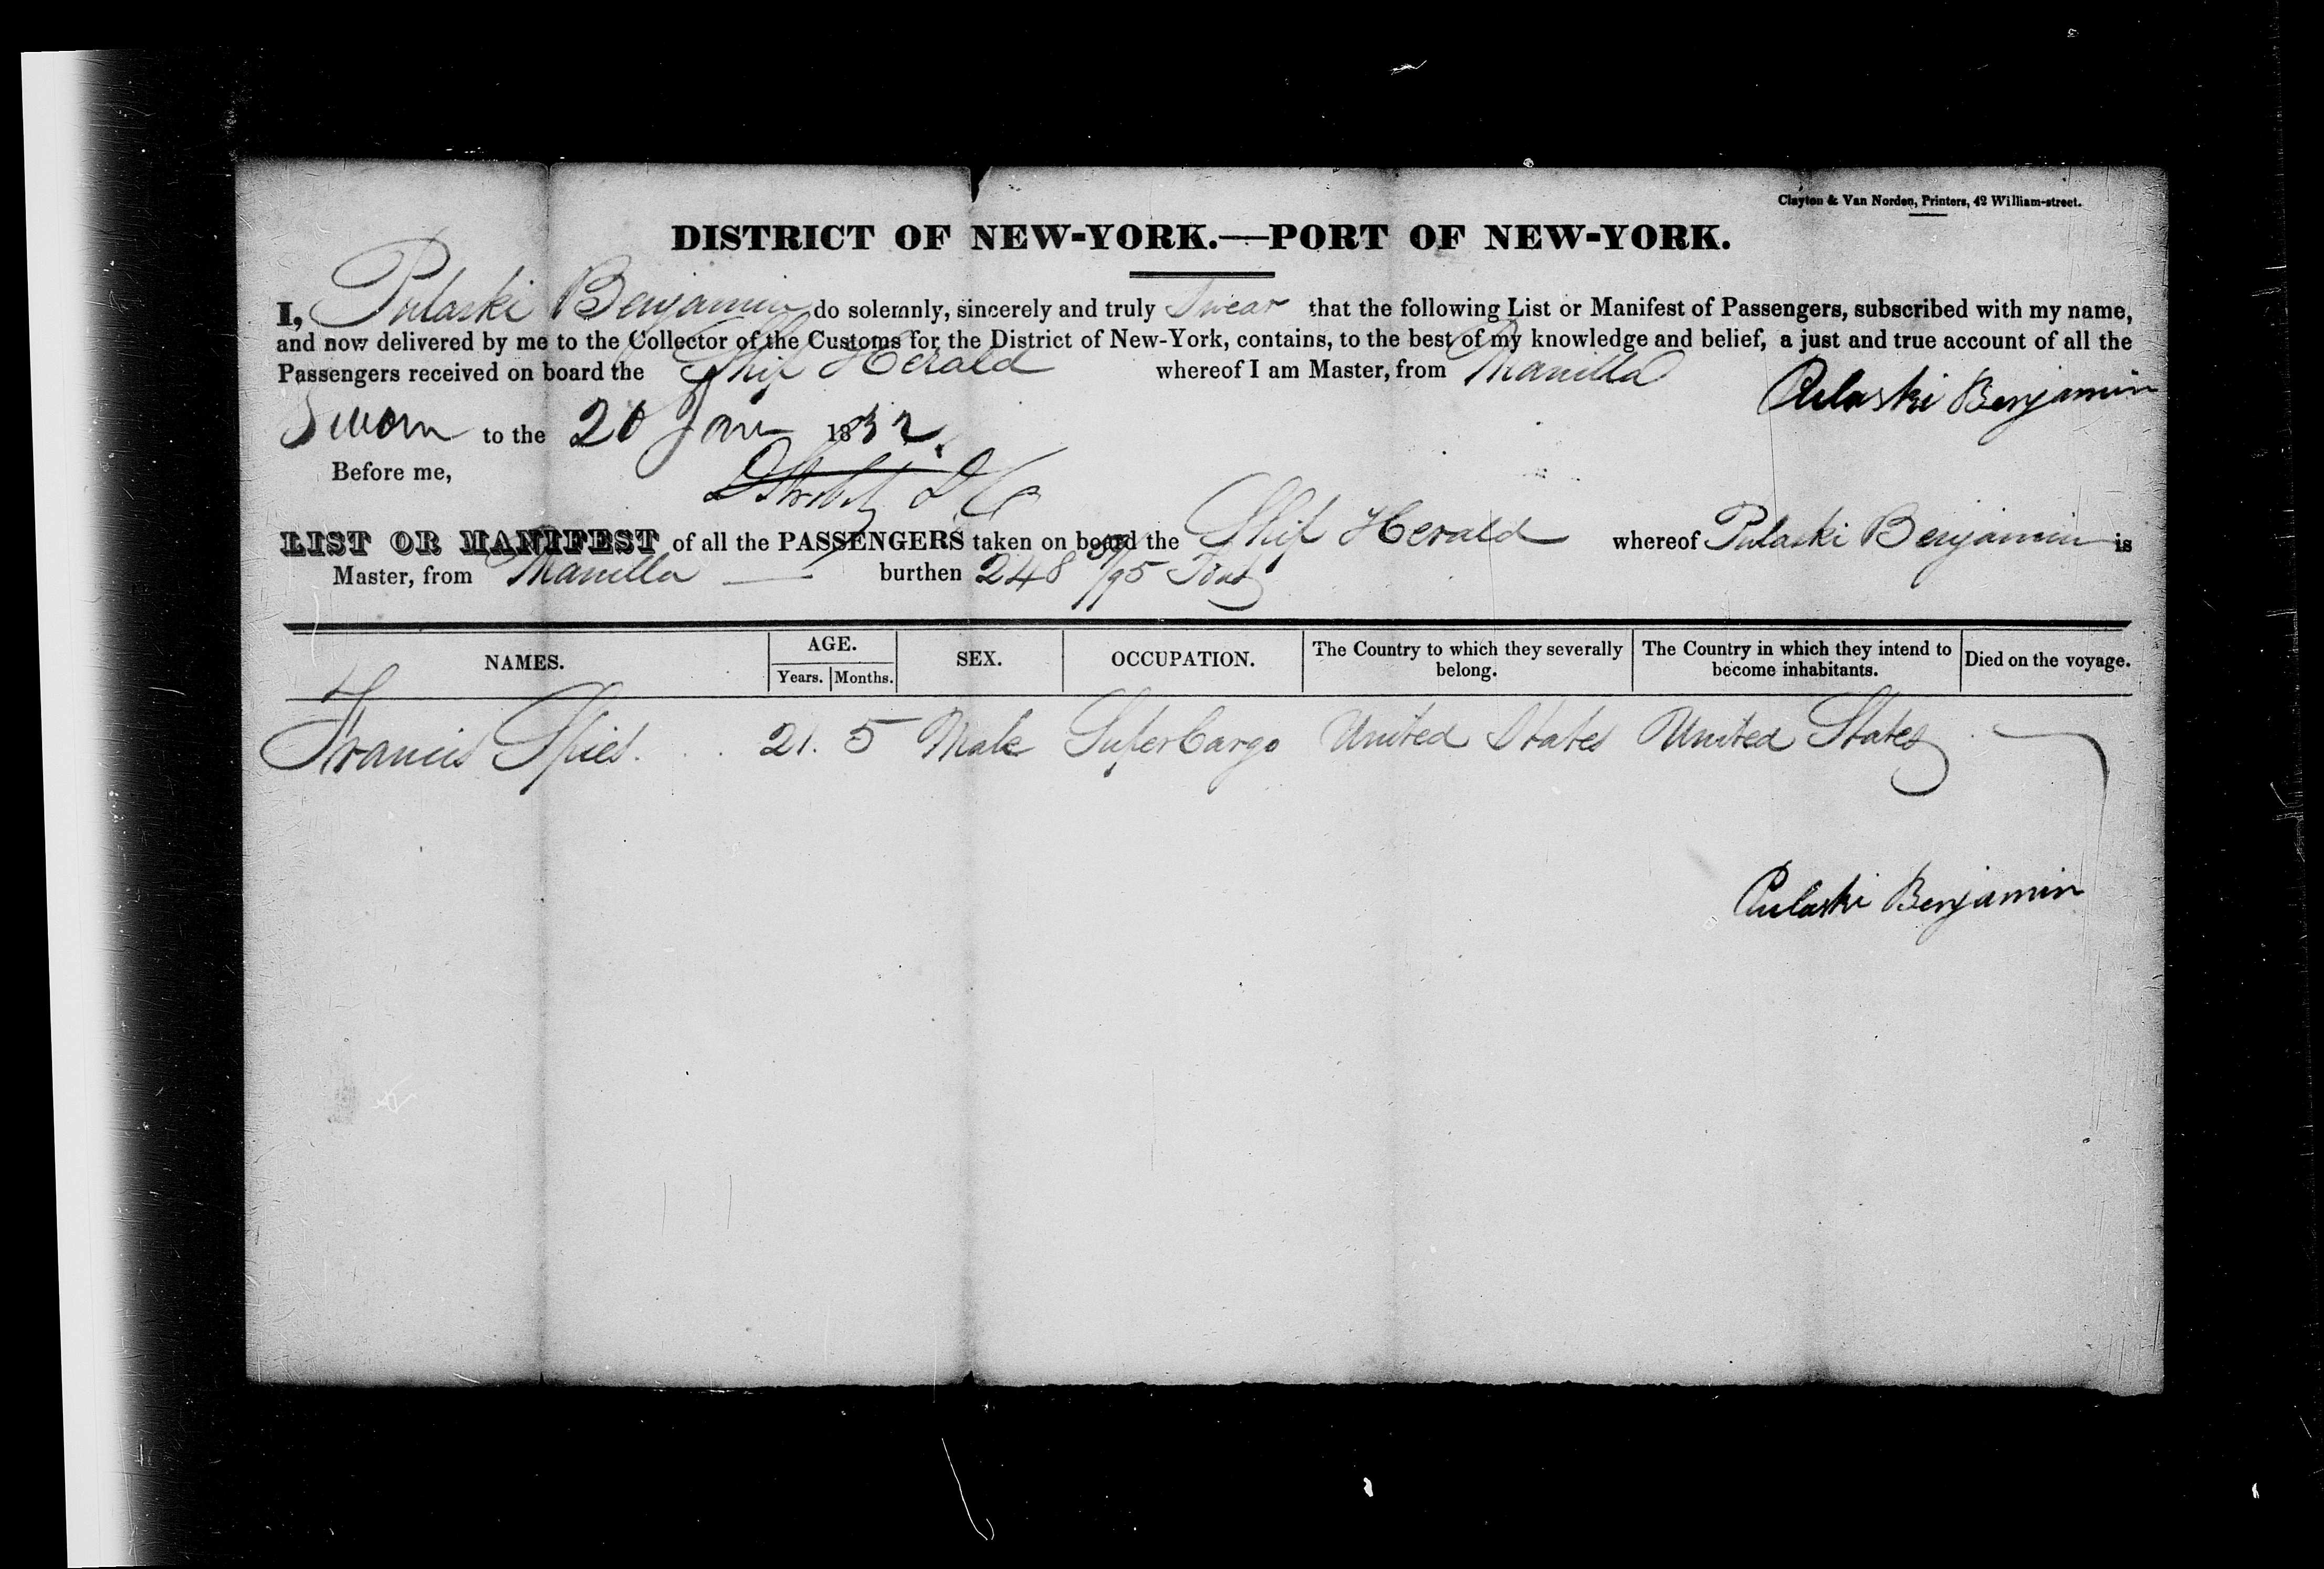 Clayton & Van Norden, Printers, 42 William-street.
DISTRICT OF NEW-YORK.—PORT OF NEW-YORK.
I, Pulaski Benjamin do solemnly, sincerely and truly Swear that the following List or Manifest of Passengers, subscribed with my name,
and now delivered by me to the Collector of the Customs for the District of New-York, contains, to the best of my knowledge and belief, a just and true account of all the
Passengers received on board the Ship Herald whereof I am Master, from Manilla
Pulaski Benjamin
Sworn to the 20 Jan 1832.
Before me,
LIST OR MANIFEST of all the PASSENGERS taken on board the Ship Herald whereof Pulaski Benjamin is
Master, from Manilla — burthen 248 /95 Tons
NAMES. AGE. Years. Months. SEX. OCCUPATION. The Country to which they severally belong. The Country in which they intend to become inhabitants. Died on the voyage.
Francis Spies. 21. 5 Male SuperCargo United States United States
Pulaski Benjamin